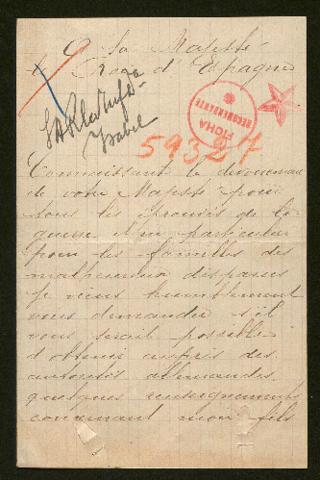 A Sa Majesté
le Roy d'Espagne
SAR la Infanta
Isabel
FICHA
RECOMENDANTE
59327
Connaissant le dévouement
de votre Majesté pour
tous les éprouvés de la
guerre et en particulier
pour les familles des
malheureux disparus
je viens humblement
vous demander s'il
vous serait possible
d'obtenir auprès des
autorités allemandes
quelques renseignements
concernant mon fils